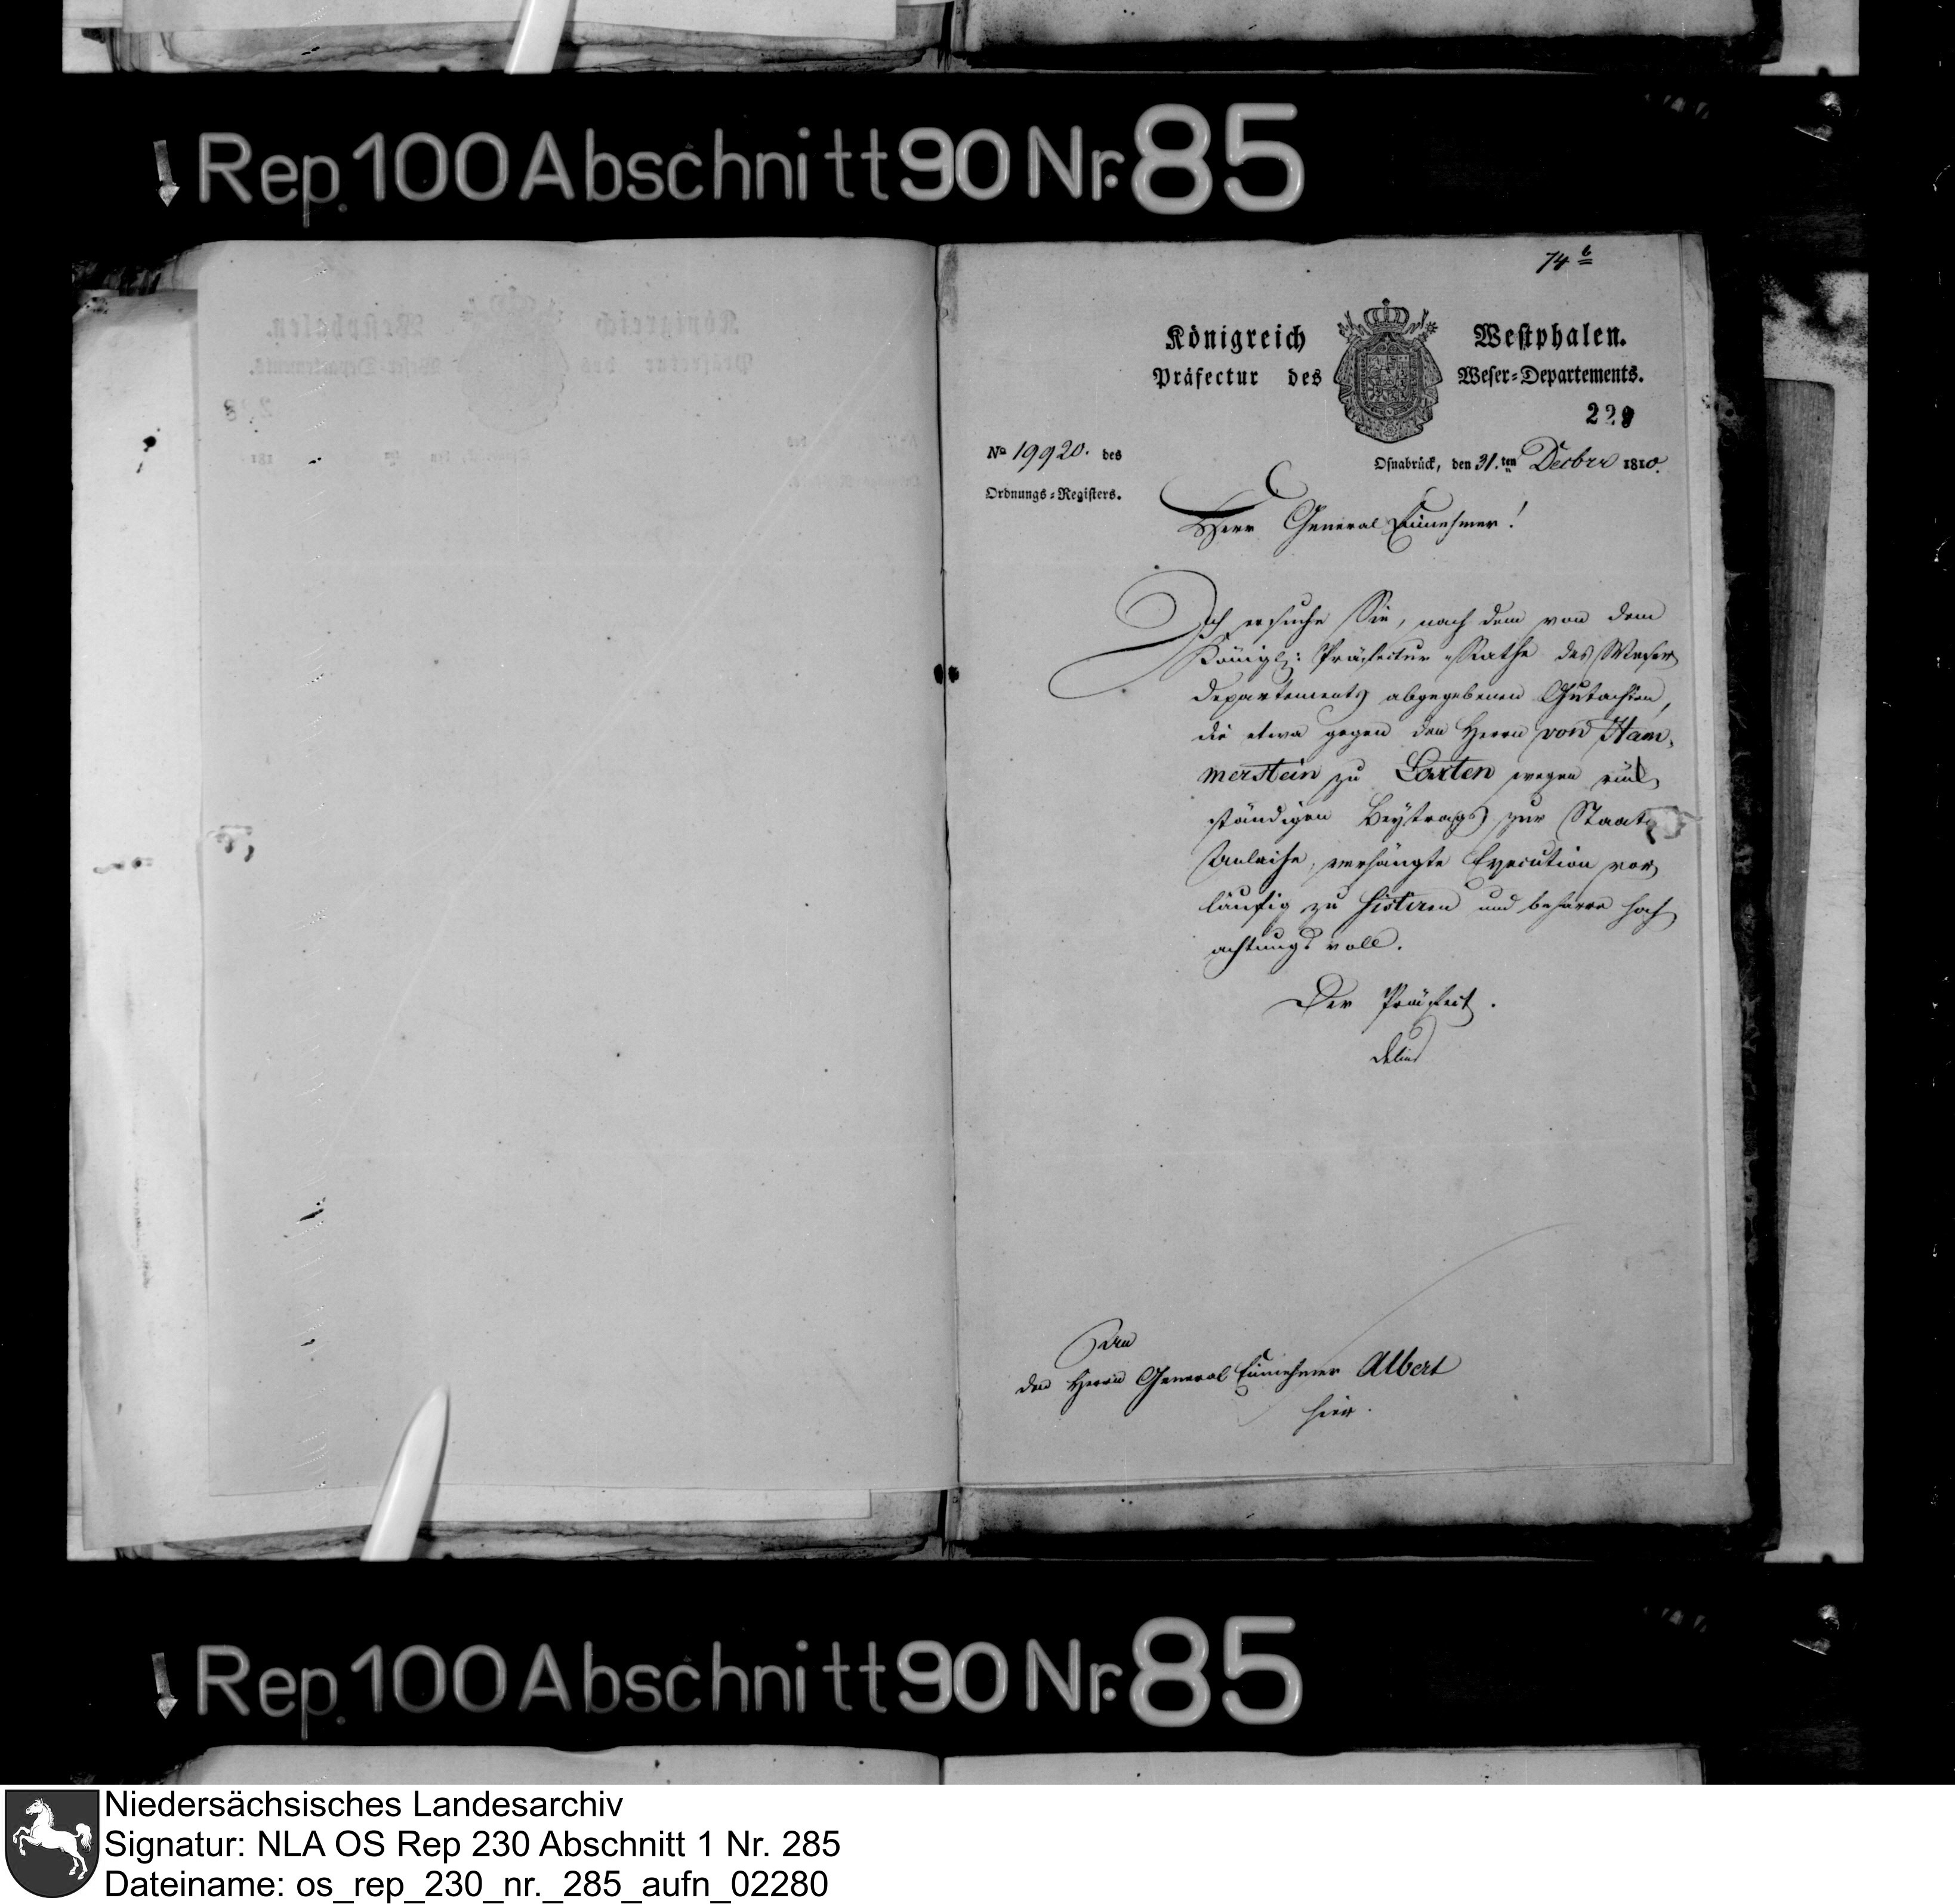 Rep. 100 Abschnitt 90 Nr. 85
74 b
Königreich Westphalen.
Präfectur des Weser-Departements.
229
No 19920. des
Ordnungs-Registers.
Osnabrück, den 31.ten Decbr 1810.
Herr General Einnehmer!
Ich ersuche Sie, nach dem von dem
Königl: Präfectur-Rathe des Weser
departements abgegebenen Gutachten,
die etwa gegen den Herrn von Ham-
merstein zu Laxten wegen rück-
ständigen Beytrags zur Staats
Anleihe, verhängte Execution vor-
läufig zu sistiren und beharre hoch
achtungsvoll.
Der Präfect.
Delius
den Herrn General Einnehmer Albert
hier.
Rep. 100 Abschnitt 90 Nr. 85
Niedersächsisches Landesarchiv
Signatur: NLA OS Rep 230 Abschnitt 1 Nr. 285
Dateiname: os_rep_230_nr._285_aufn_02280